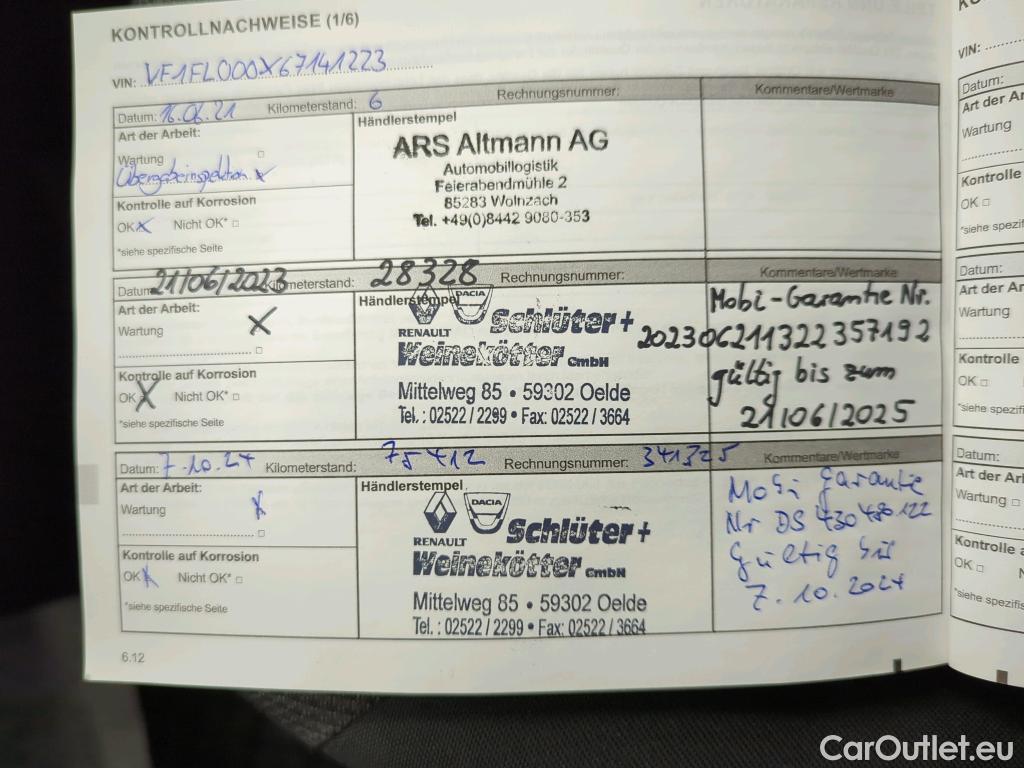 KONTROLLNACHWEISE (1/6)
VIN: VF1FL000X67141223
Datum: 16.06.21 Kilometerstand: 6 Rechnungsnummer: Kommentare/Wertmarke
Art der Arbeit:
Wartung
Übergabeinspektion x
Kontrolle auf Korrosion
OK x Nicht OK*
*siehe spezifische Seite
Händlerstempel
ARS Altmann AG
Automobillogistik
Feierabendmühle 2
85283 Wolnzach
Tel. +49(0)8442 9080-353
Datum: 21/06/2023 Kilometerstand: 28328 Rechnungsnummer: Kommentare/Wertmarke
Art der Arbeit:
Wartung X
Kontrolle auf Korrosion
OK X Nicht OK*
*siehe spezifische Seite
Händlerstempel
RENAULT DACIA
Schlüter+
Weinekötter GmbH
Mittelweg 85 • 59302 Oelde
Tel.: 02522/2299 • Fax: 02522/3664
Mobi-Garantie Nr.
202306211322357192
gültig bis zum
21/06/2025
Datum: 7.10.24 Kilometerstand: 75412 Rechnungsnummer: 341325 Kommentare/Wertmarke
Art der Arbeit:
Wartung x
Kontrolle auf Korrosion
OK x Nicht OK*
*siehe spezifische Seite
Händlerstempel
RENAULT DACIA
Schlüter+
Weinekötter GmbH
Mittelweg 85 • 59302 Oelde
Tel.: 02522/2299 • Fax: 02522/3664
Mobi Garantie
Nr DS 430480122
Gültig bis
7.10.2024
6.12
VIN:
Datum:
Art der Ar
Wartung
Kontrolle
OK
*siehe spezif
Datum:
Art der Ar
Wartung
Kontrolle
OK
*siehe spezifi
Datum:
Art der Ar
Wartung
Kontrolle a
OK N
*siehe spezifis
CarOutlet.eu